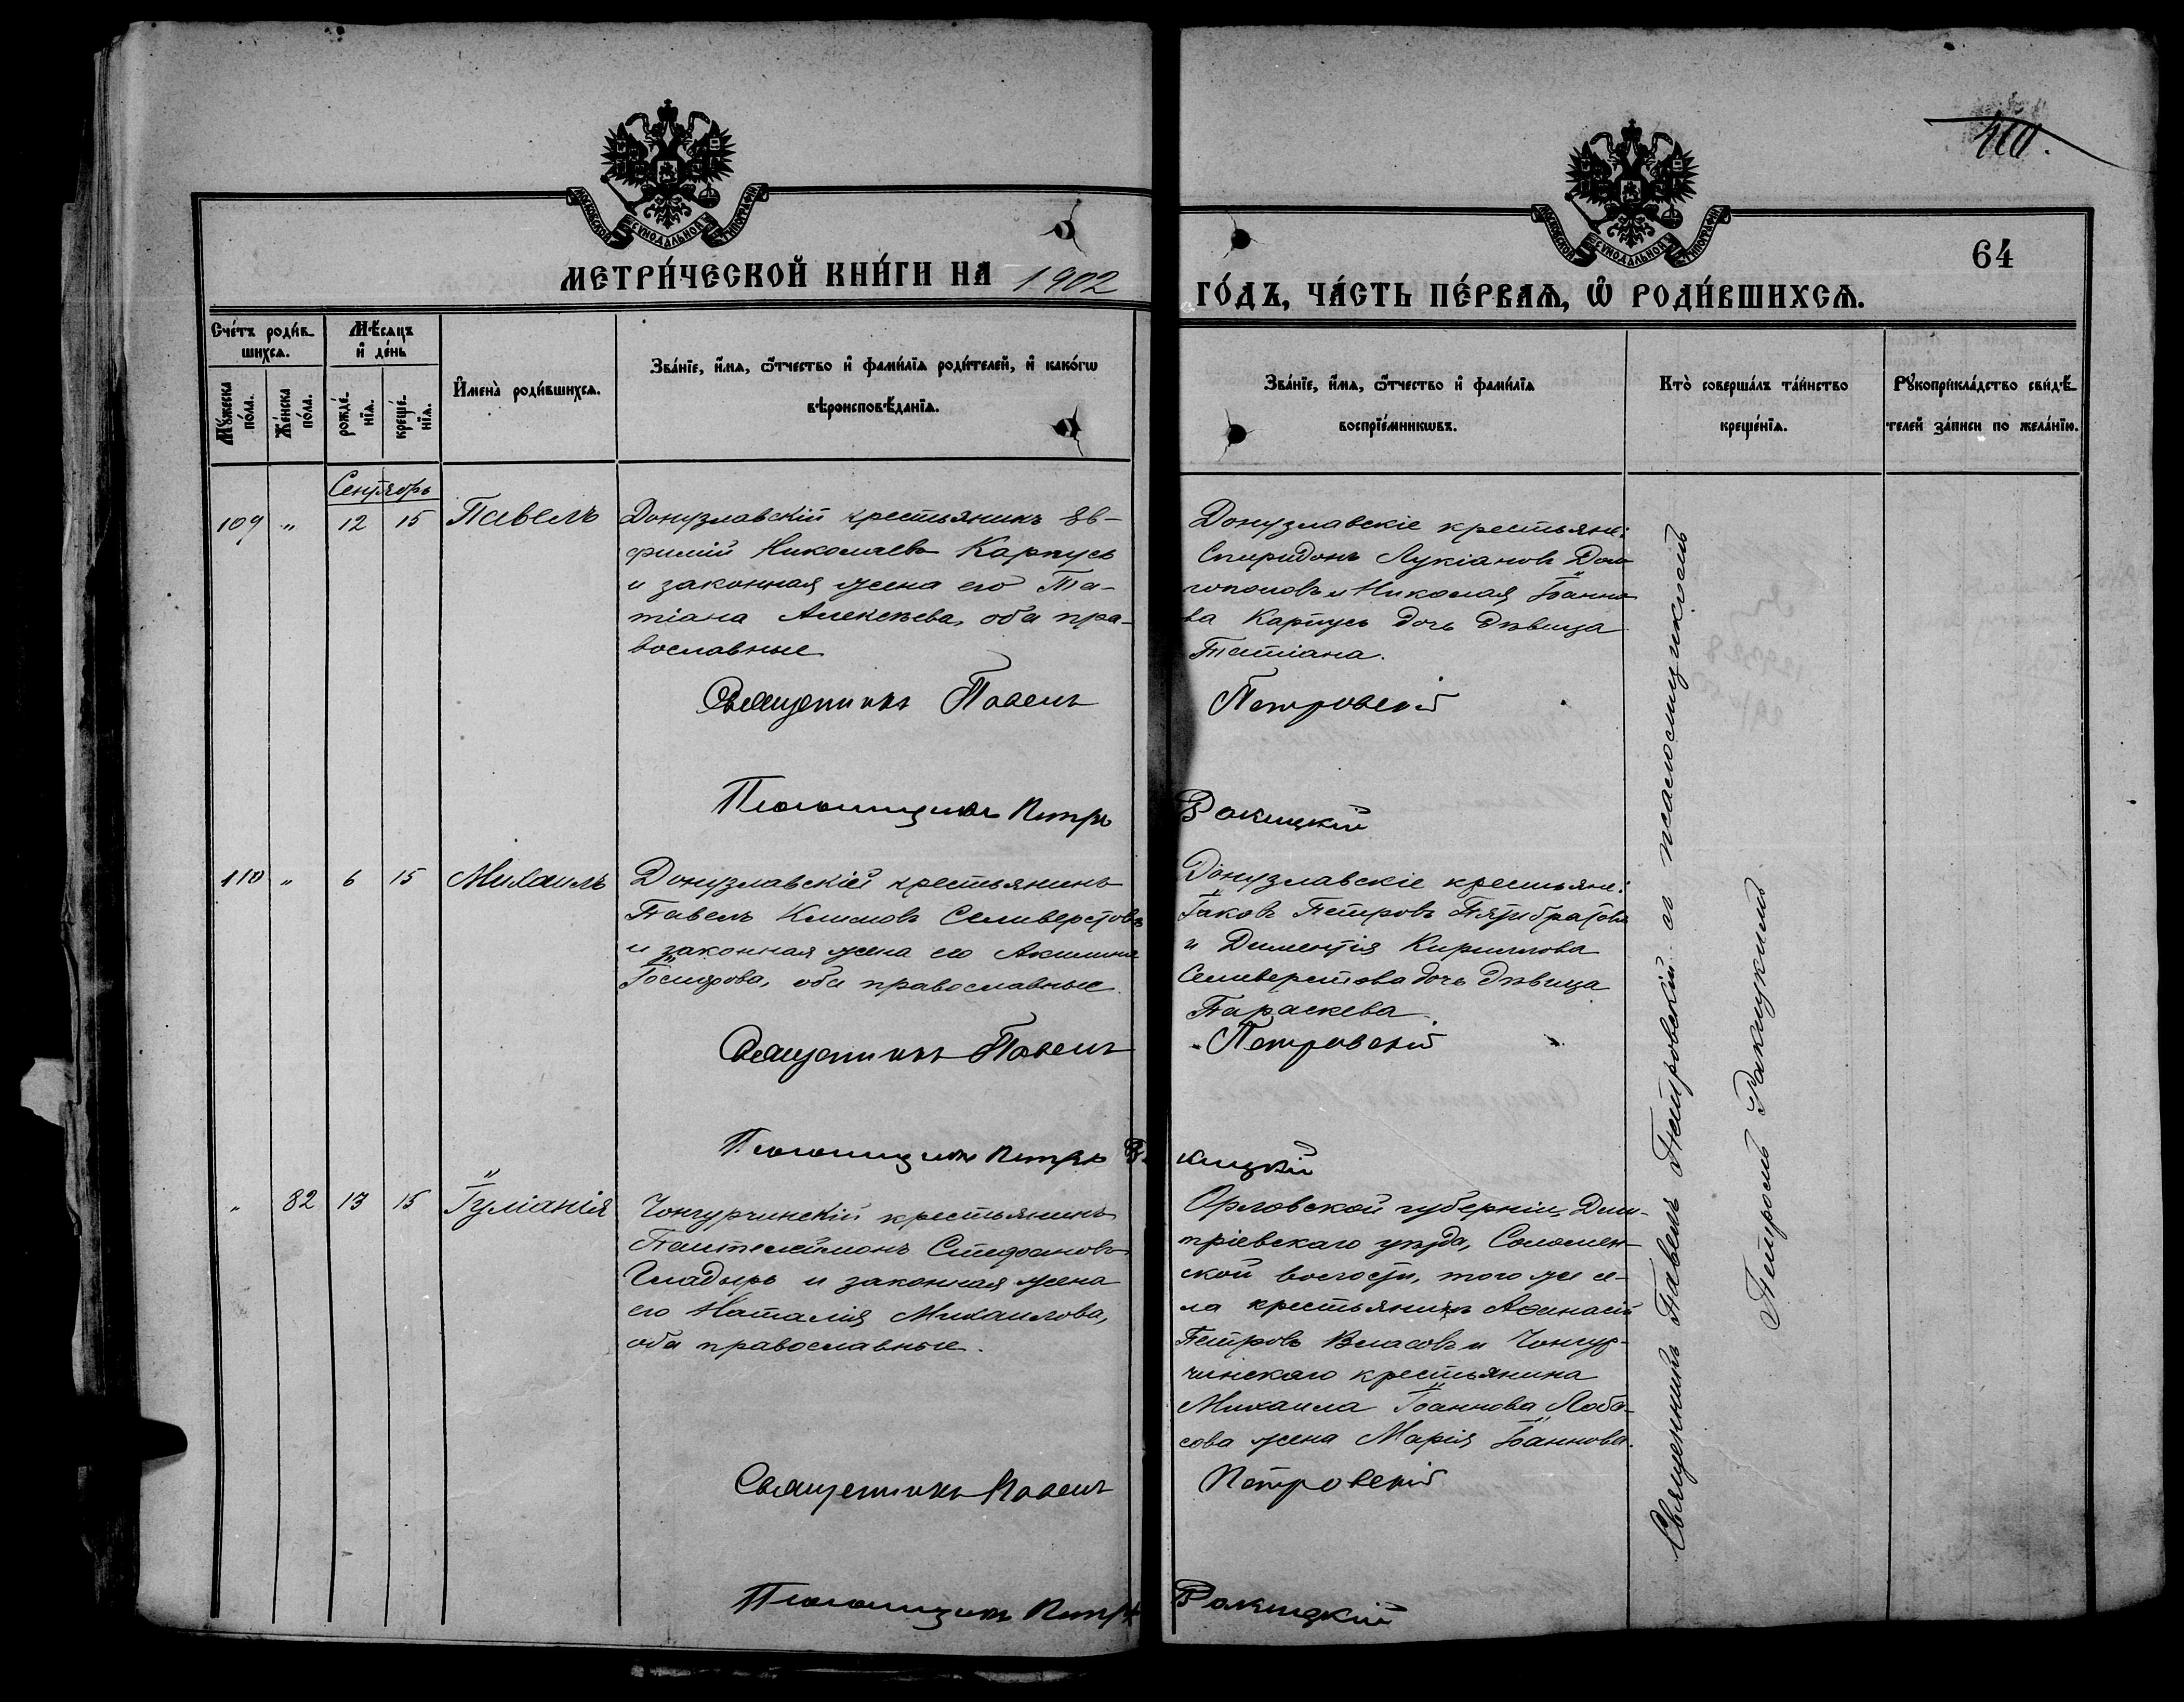 410.
МОСКОВСКОЙ СѴНОДАЛЬНОЙ ТИПОГРАФІИ
МОСКОВСКОЙ СѴНОДАЛЬНОЙ ТИПОГРАФІИ
64
МЕТРИ́ЧЕСКОЙ КНИ́ГИ НА 1902
ГО́ДЪ, ЧА́СТЬ ПЕ́РВАѦ, Ѽ РОДИ́ВШИХСѦ.
Сче́тъ роди́в-
шихсѧ.
Мꙋжеска по́ла.
Же́нска по́ла.
Мѣ́сѧцъ
и҆ де́нь
рожде́-
нїѧ.
креще́-
нїѧ.
И҆мена̀ роди́вшихсѧ.
Зва́нїе, и҆́мѧ, ѻ҆́тчество и҆ фами́лїѧ роди́телей, и҆ како́гѡ
вѣроисповѣ́данїѧ.
Зва́нїе, и҆́мѧ, ѻ҆́тчество и҆ фами́лїѧ
воспрїе́мникѡвъ.
Кто̀ соверша́лъ та́инство
креще́нїѧ.
Рꙋкоприкла́дство свидѣ́-
телей за́писи по жела́нїю.
Сентябрь
109 " 12 15 Павелъ
Донузлавскій крестьянинъ Ев-
фимій Николаевъ Карпусь
и законная жена его Та-
тіана Алексѣева, оба пра-
вославные
Донузлавскіе крестьяне:
Спиридонъ Лукіановъ Дол
гополовъ и Николая Іоанно
ва Карпусь дочь дѣвица
Татіана.
Священникъ Павелъ Петровскій
Псаломщикъ Петръ Ракицкій
110 " 6 15 Михаилъ
Донузлавскій крестьянинъ
Павелъ Климовъ Селиверстовъ
и законная жена его Акилина
Іосифова, оба православные
Донузлавскіе крестьяне:
Іаковъ Петровъ Пятибратовъ
и Дементія Кириллова
Селиверстова дочь дѣвица
Параскева.
Священникъ Павелъ Петровскій
Псаломщикъ Петръ Ракицкій
" 82 13 15 Іуліанія
Чонгурчинскій крестьянинъ
Пантелеймонъ Стефановъ
Гладырь и законная жена
его Наталія Михаилова,
оба православные.
Орловской губерніи, Дми-
тріевскаго уѣзда, Соломен-
ской волости, того же се-
ла крестьянинъ Аѳанасій
Петровъ Власовъ и Чонгур-
чинскаго крестьянина
Михаила Іоаннова Лоба-
сова жена Марія Іоаннова.
Священникъ Павелъ Петровскій
Псаломщикъ Петръ Ракицкій
Священникъ Павелъ Петровскій съ псаломщикомъ
Петромъ Ракицкимъ